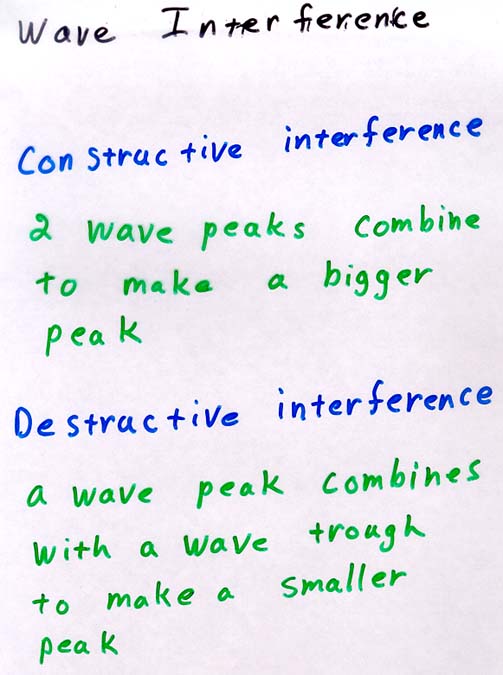 Wave Interference
Constructive interference
2 wave peaks combine
to make a bigger
peak
Destructive interference
a wave peak combines
with a wave trough
to make a smaller
peak